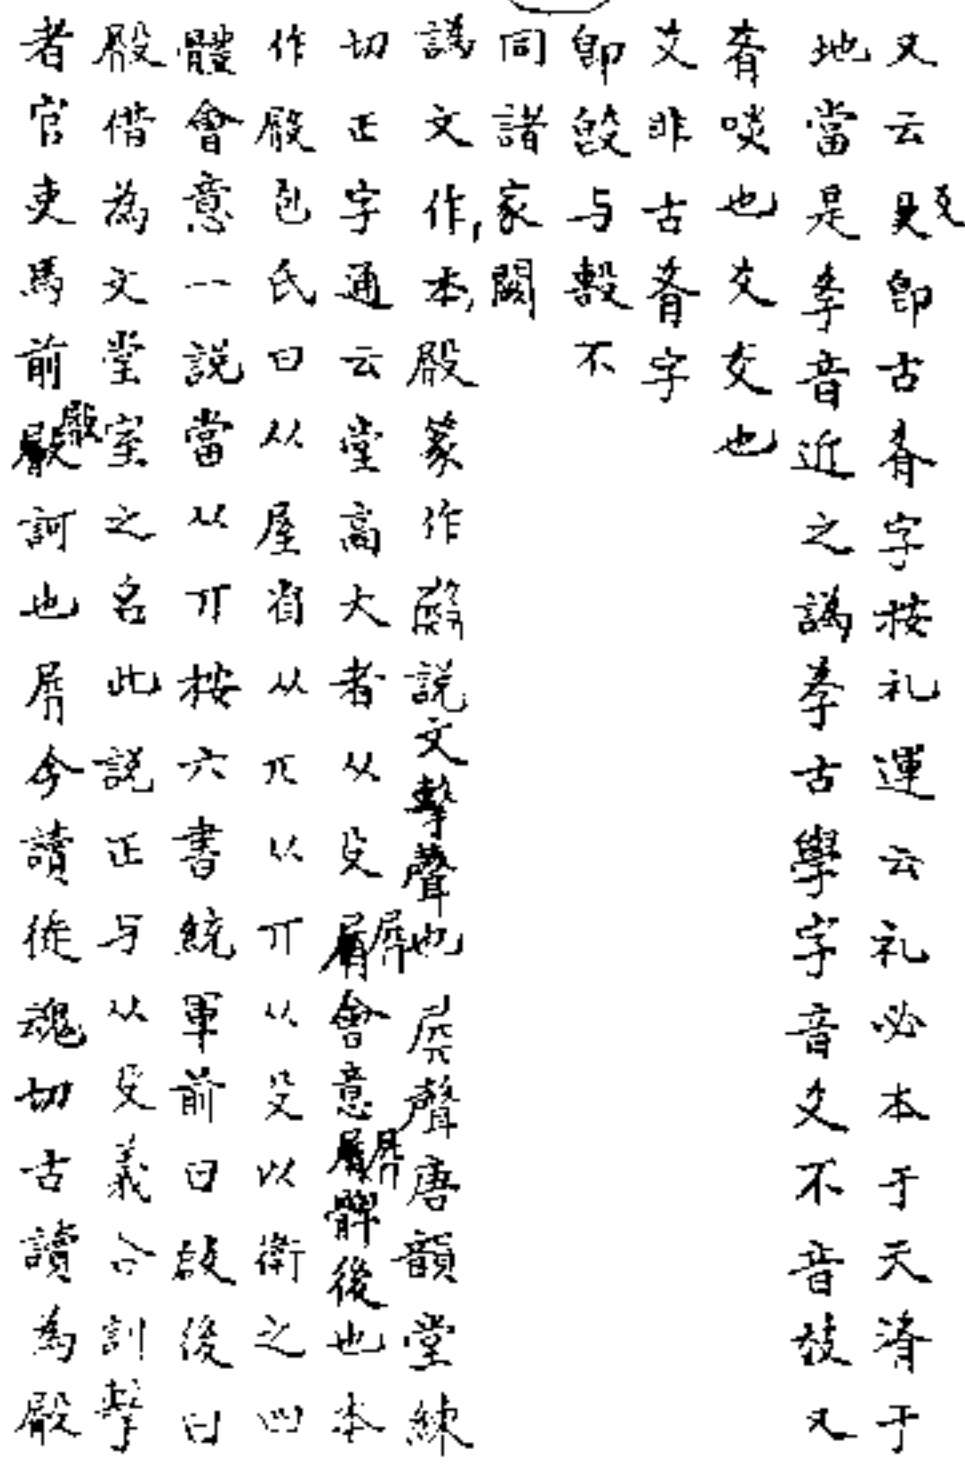 又云㕛即古肴字按礼運云礼必本于天渚于
地當是孝音近之譌孝古學字音爻不音教又
肴啖也爻交也
爻非古肴字
即㱿与毄不
同諸家闕
譌文作本殿篆作說文擊聲也𡱂聲唐韻堂練
切正字通云堂高大者从殳𡱂會意𡱂髀後也本
作殿包氏曰从屋省从丌以丌以殳以衛之四
體會意一說當从丌按六書統軍前曰啟後曰
殿借為文堂室之名此説正与从殳義合訓擊
者官吏馬前殿訶也屑今讀徒魂切古讀為殿